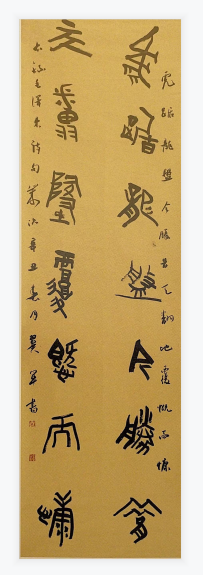 虎踞龍盤今勝昔天翻地覆慨而慷
虎踞龍盤今勝昔
天翻地覆慨而慷
右錄毛澤東詩句歲次辛丑月軍書